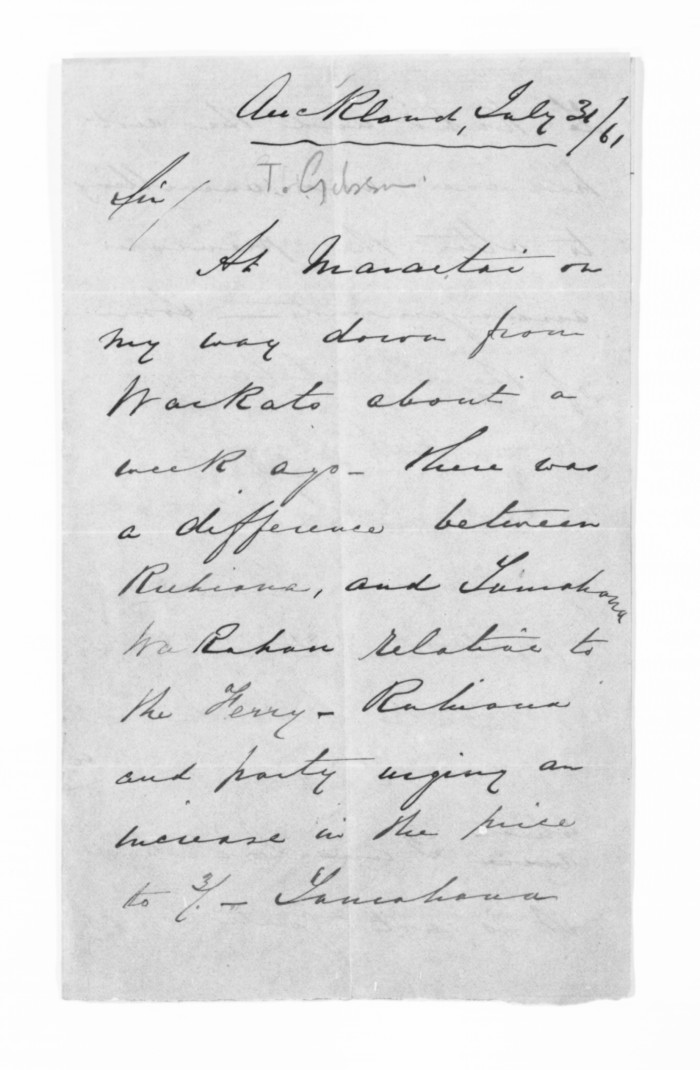 Auckland, July 31/61
T. Gibson.
Sir/
At Maraetai on
my way down from
Waikato about a
week ago - there was
a difference between
and Tamahana
relative to
the Ferry -
and party urging an
increase in the price
to 3/. - Tamahana